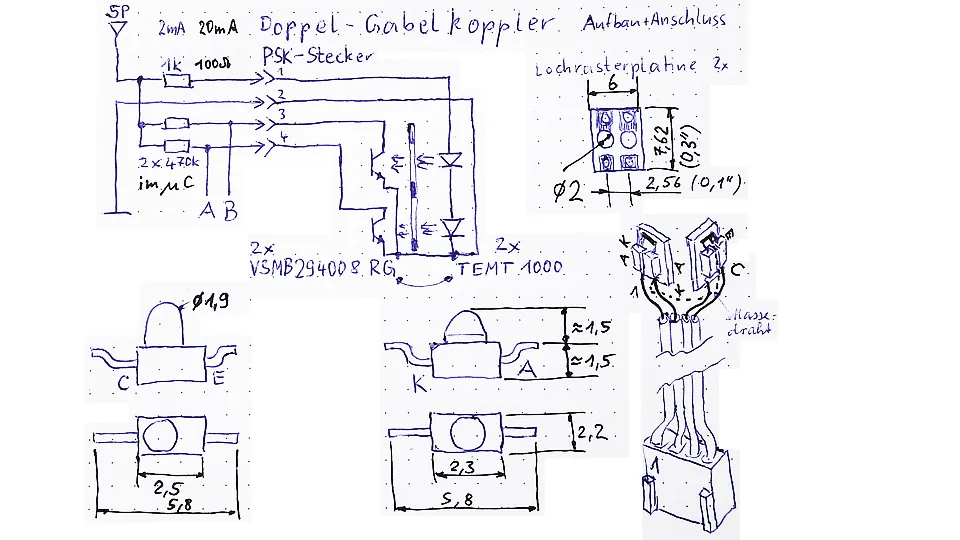 5P
2mA 20mA
Doppel-Gabelkoppler
Aufbau+Anschluss
PSK-Stecker
1k 100Ω
Lochrasterplatine 2x
1
2
3
4
6
7,62
(0,3")
2 x 470k
im µC
A B
Ø2
2,56 (0,1")
2x
VSMB294008 RG
2x
TEMT 1000
K
A
E
C
A
K
1
Masse-
draht
Ø1,9
C
E
≈1,5
≈1,5
K
A
2,5
5,8
2,2
2,3
5,8
1